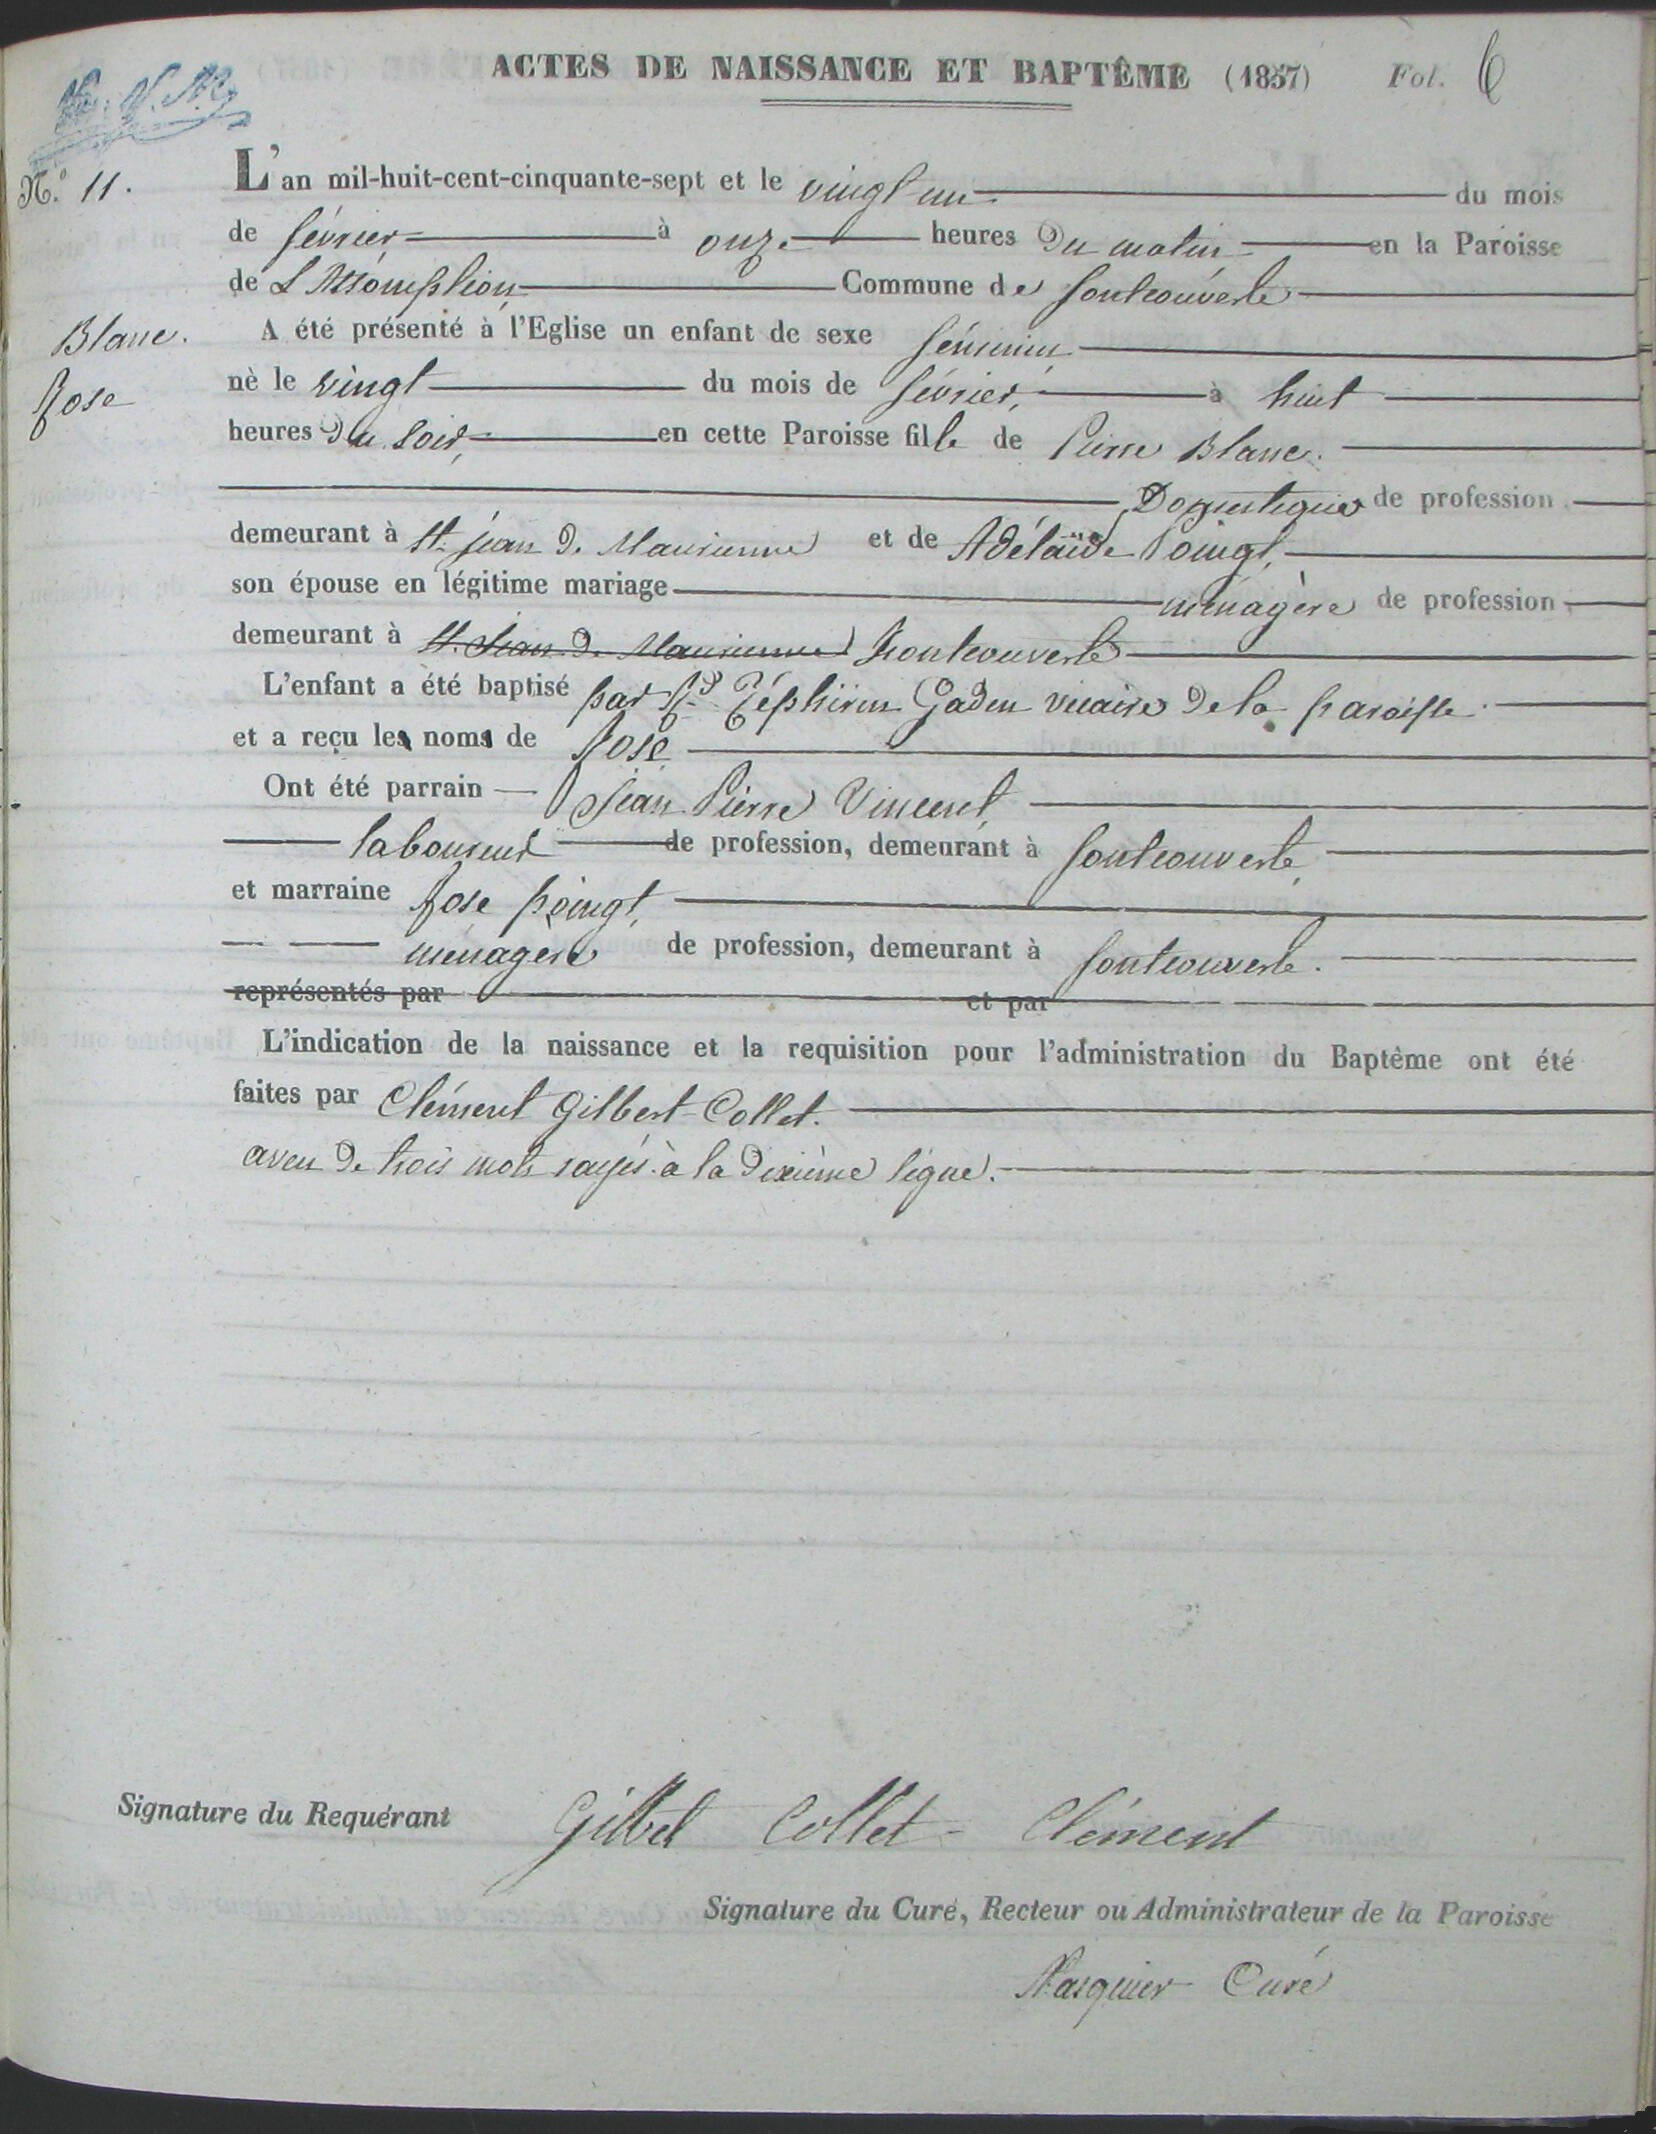 ACTES DE NAISSANCE ET BAPTÊME (1857) Fol. 6
N.º 11.
L'an mil-huit-cent-cinquante-sept et le vingt un du mois
de février à onze heures du matin en la Paroisse
de L'Assomption Commune de fontcouverte
Blanc.
A été présenté à l'Eglise un enfant de sexe féminin
Rose
nè le vingt du mois de février, à huit
heures du soir, en cette Paroisse fille de Pierre Blanc.
Domestique de profession
demeurant à St. jean de Maurienne et de Adélaïde Poingt,
son épouse en légitime mariage ménagère de profession
demeurant à St. Jean de Maurienne fontcouverte
L'enfant a été baptisé par Rd Zéphirin Gaden vicaire de la paroisse.
et a reçu les noms de Rose
Ont été parrain Jean Pierre Vincent,
laboureur de profession, demeurant à fontcouverte,
et marraine Rose poingt,
ménagère de profession, demeurant à fontcouverte.
représentés par et par
L'indication de la naissance et la requisition pour l'administration du Baptême ont été
faites par Clément Gilbert-Collet.
aveu de trois mots rayés à la dixième ligne.
Signature du Requérant Gilbet Collet Clément
Signature du Curé, Recteur ou Administrateur de la Paroisse
Curé